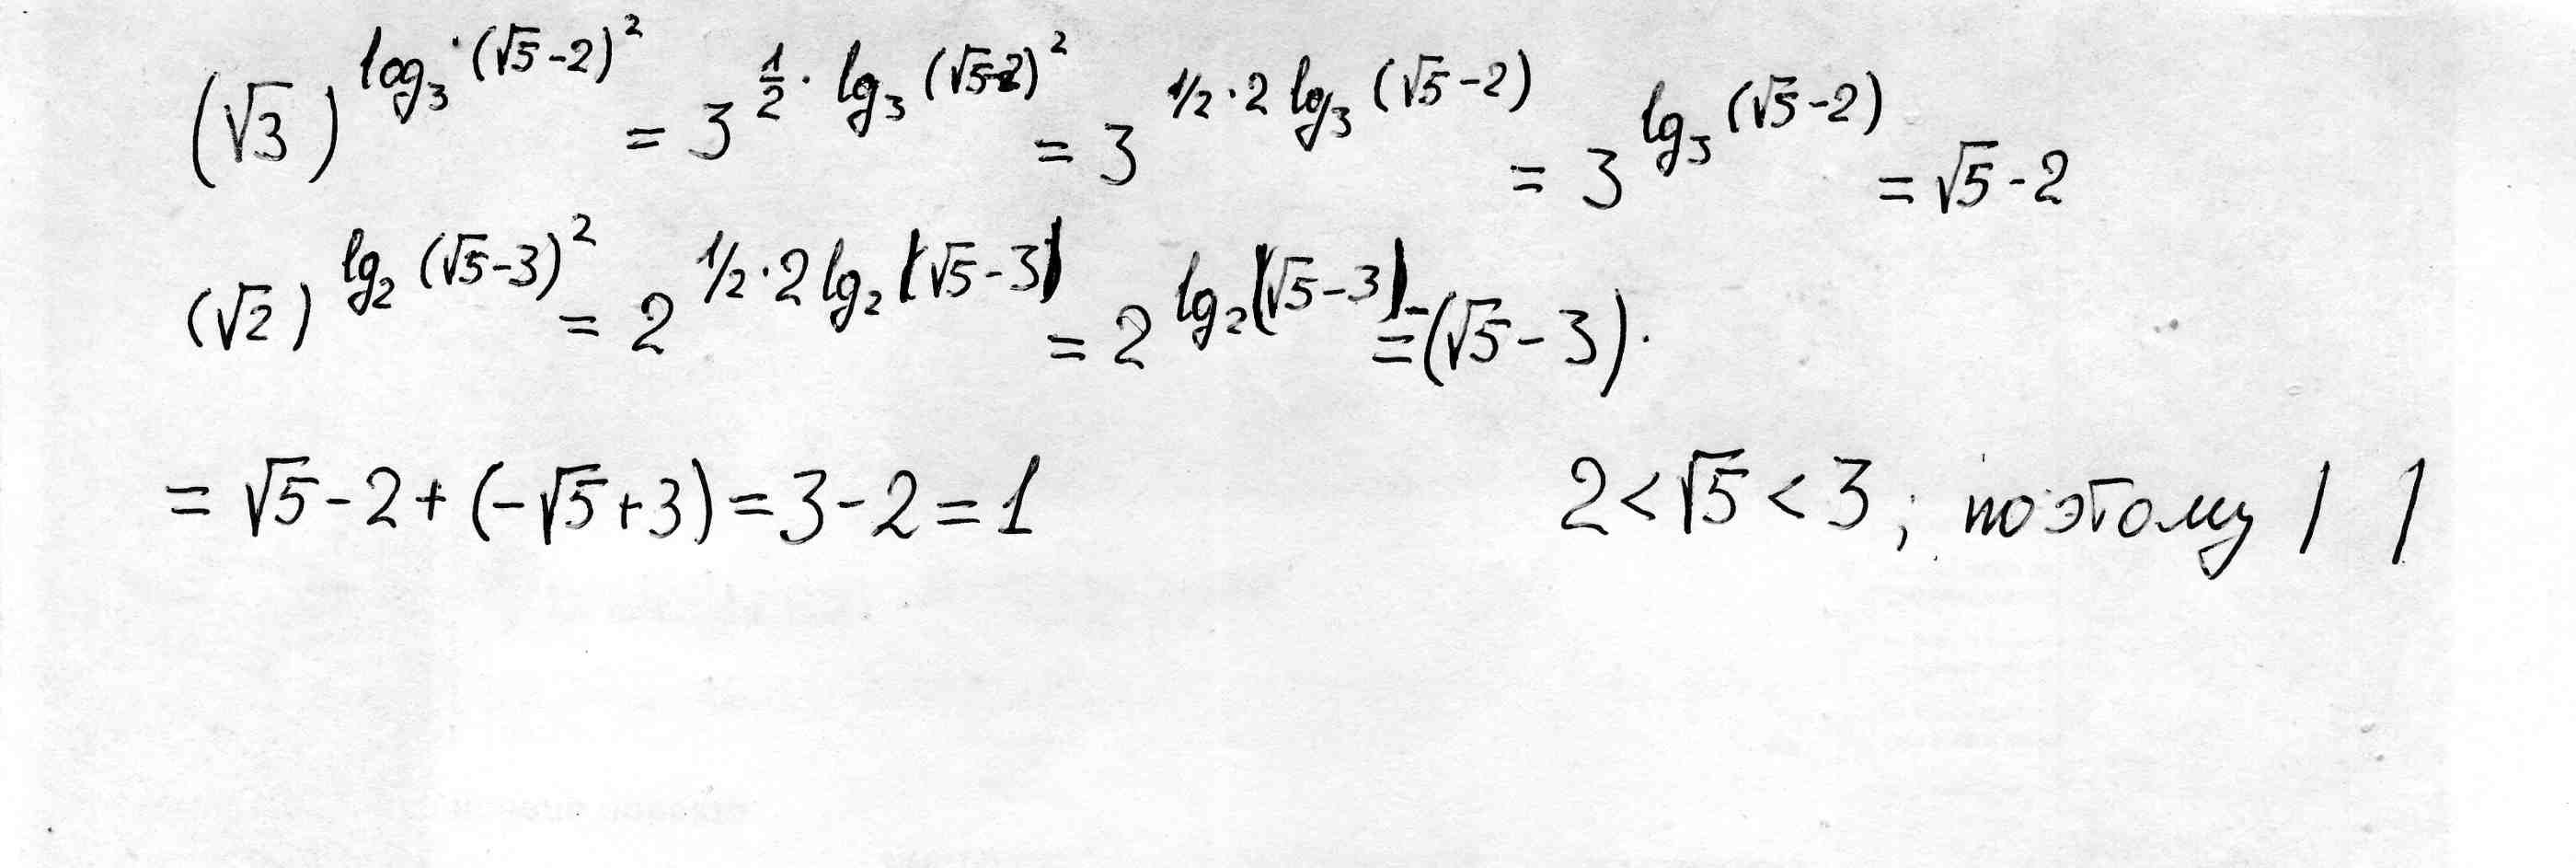 (√3)^log₃(√5-2)² = 3^½·lg₃(√5-2)² = 3^1/2·2lg₃(√5-2) = 3^lg₃(√5-2) = √5-2
(√2)^lg₂(√5-3)² = 2^1/2·2lg₂|√5-3| = 2^lg₂|√5-3| = -(√5-3).
= √5-2+(-√5+3)=3-2=1
2<√5<3; поэтому | |